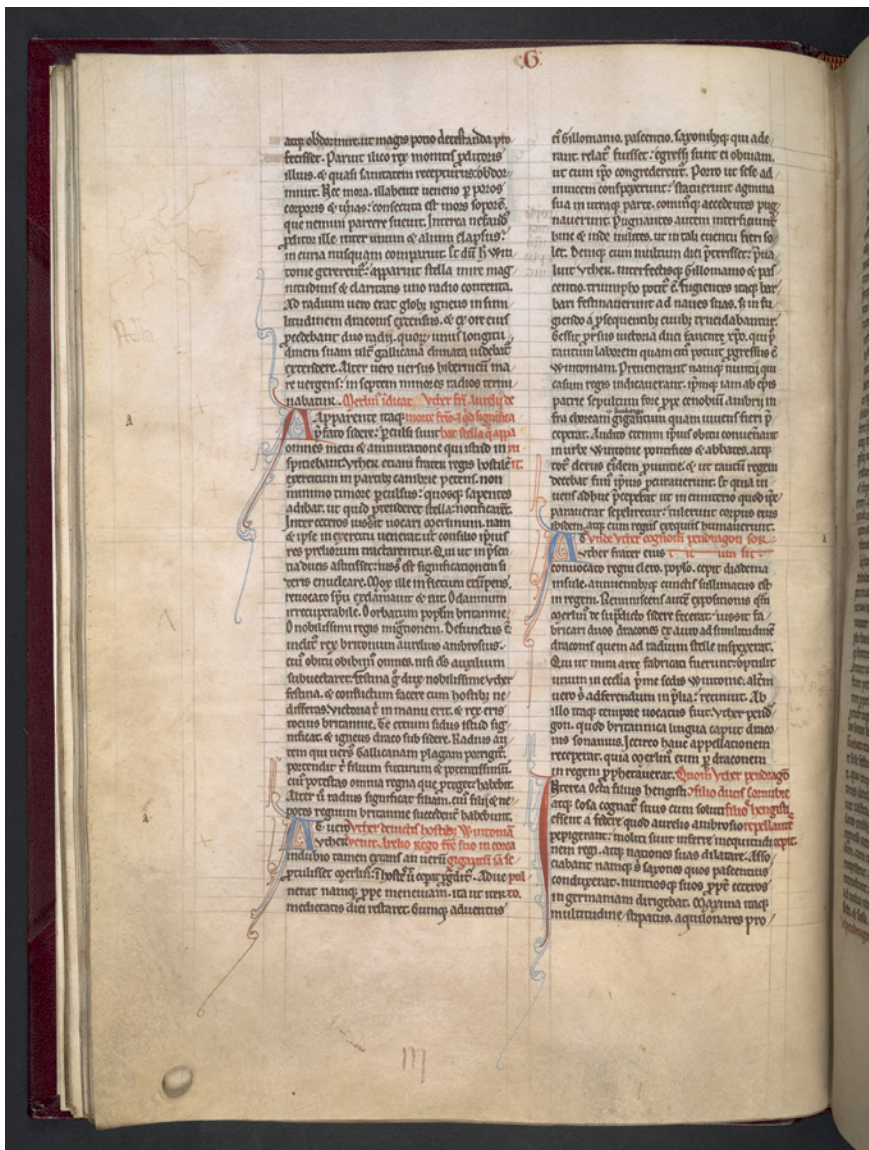 G
atq; obdormire. ut magis potio detestanda pro
fecisset. Paruit ilico rex monitis proditoris
illius. & quasi sanitatem recepturus: obdor
miuit. Nec mora. illabente ueneno p poros
corporis & uenas: consecuta est mors soporē.
que nemini parcere sueuit. Interea nefandꝰ
proditor ille inter unum & alium elapsus:
in curia nusquam comparuit.
tonie gererent: apparuit stella mire mag
nitudinis & claritatis uno radio contenta.
Ad radium uero erat globꝰ igneus in simi
litudinem draconis extensus. & ex ore eius
pcedebant duo radii. quorum unius longitu
dinem suam ultra gallicana climata uidebat
extendere. Alter uero uersus hibernicū ma
re uergens: in septem minores radios termi
nabatur. Merlinꝰ īdicat Vther frī aurelii de
Apparente itaq; morte frīs & qd significa
p̄fato sidere: pculsi sunt hac stella q̄ appa
omnes metu & ammiratione qui istud in
spiciebant. Vther etiam frater regis hostilē
exercitum in partibꝫ cambrie petens. non
minimo timore pculsus: quosq; sapientes
adibat. ut quid portenderet stella: notificarēt.
Inter ceteros iussit uocari merlinum. nam
& ipse in exercitu uenerat. ut consilio ipsius
res preliorum tractarentur. Qui ut in psen
tia ducis astitisset: iussꝰ est significationem si
deris enucleare. Mox ille in fletum erūpens.
reuocato spū exclamauit & ait. O dampnum
irrecuperabile. O orbatum poplm britannie.
O nobilissimi regis migrationem. Defunctus ē
inclitꝰ rex britonum aurelius ambrosius.
cuiꝰ obitu obibimꝰ omnes. nisi dīs auxilium
subuectaret. festina g̃ dux nobilissime vther
festina. & conflictum facere cum hostibꝫ ne
differas. Victoria tͥ in manu erit. & rex eris
tocius britannie. Te etenim sidus istud sig
nificat. & igneus draco sub sidere. Radius au
tem qui uersꝰ Gallicanam plagam porrigit.
portendit tͥ filium futurum & potentissimū.
cuiꝰ potestas omnia regna que proteget habebit.
Alter uͦ radius significat filiam. cuiꝰ filii & ne
potes regnum britannie succedent habebunt.
At uero Vther deuictis hostibꝫ Wintoniā
Vther uenit.
in dubio tamen extans an uerū gigantū
pculisset merlinꝰ: ī hostes ut cepat pgdit. Adue
nerat namq; ppe meneuiam. ita ut iter
medietatis diei restaret. Cumq; aduentus
eiꝰ Gillomanio. pascentio. saxonibꝫq; qui ade
rant. relatꝰ fuisset: egressi sunt ei obuiam.
ut cum ipo congrederent. Porro ut sese ad
inuicem conspexerunt: statuerunt agmina
sua in utraq; parte. cominusq; accedentes pug
nauerunt. Pugnantes autem interficiunt
hinc & inde milites. ut in tali euentu fieri so
let. Deniq; cum multum diei pterisset: pua
luit Vther. interfectisq; Gillomanio & pas
centio. triumpho potitꝰ ē. fugientes itaq; bar
bari festinauerunt ad naues suas. sed in fu
giendo a psequentibꝫ ciuibꝫ trucidabantur.
Cessit prsus uictoria duci fauente xpo. qui pꝰ
tantum laborem quam citiꝰ potuit pgressus ē
Wintoniam. Preuenerant namq; nuntii qui
casum regis indicauerant. ipmq; iam ab epis
patrie sepultum fore ppe cenobium ambrii in
fra choream gigantum quam uiuens fieri p
ceperat. Audito etenim ipius obitu conuenerant
in urbe Wintonie pontifices & abbates. atq;
totꝰ clerus eiusdem prouincie. & ut tantum regem
decebat funꝰ ipius pcurauerunt. Et quia ui
uens adhuc pceperat ut in cimiterio quod ipse
parauerat sepeliretur: tulerunt corpus eius
ibidem. atq; cum regiis exequiis humauerunt.
At Vnde Vther cognom pendragon sor
Vther frater eius
conuocato regni clero. poplo. cepit diadema
insule. annuentibꝫq; cunctis sullimatus est
in regem. Reminiscens aute expositionis qm
merlinꝰ de supdicto sidere fecerat: iussit fa
bricari duos dracones ex auro ad similitudinē
draconis quem ad radium stelle inspexerat.
Qui ut mira arte fabricati fuerunt: optulit
unum in ecclia pme sedis Wintonie. altm
uero sͥ ad ferendum in plia: retinuit. Ab
illo itaq; tempore uocatus fuit Vther pend
gon. quod britannica lingua caput draco
nis sonamus. Iccirco hanc appellationem
receperat. quia merlinꝰ eum p draconem
in regem pphetauerat. Quom Vther pendragō
INterea Octa filius hengisti filio ducis cornubie
atq; Eosa cognatꝰ suus cum soluti filio hengisti
essent a federe quod aurelio ambrosio repellunt
pepigerant: moliti sunt inferre inquietudi
nem regi. atq; nationes suas dilatare. Asso
ciabant namq; sͥ saxones quos pascentius
conduxerat. nuntiosq; suos ppt ceteros
in germaniam dirigebat. Maxima itaq;
multitudine stipatus. aquilonares pro